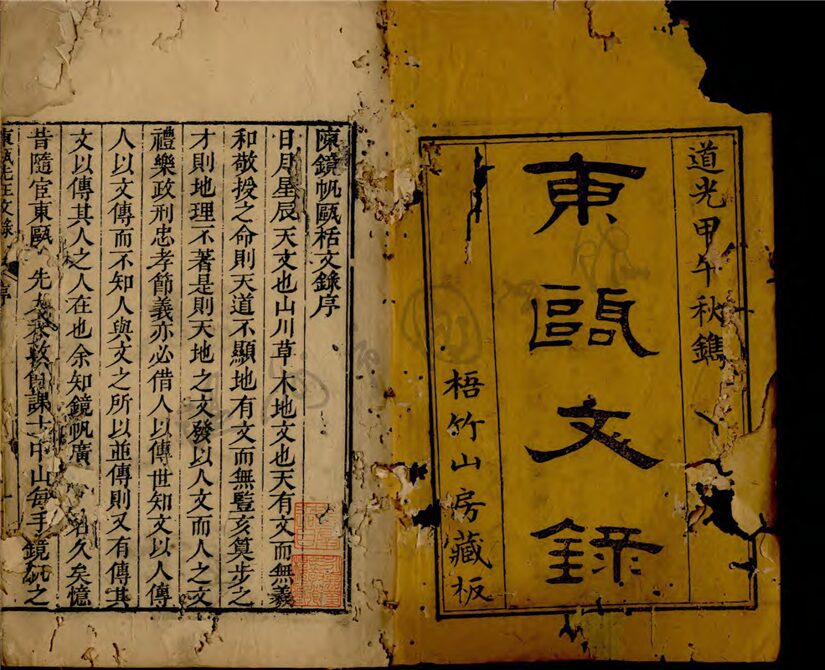 道光甲午秋鐫
東甌文錄
梧竹山房藏板
陳鏡帆甌栝文錄序
日月星辰天文也山川草木地文也天有文而無羲
和敬授之命則天道不顯地有文而無豎亥算步之
才則地理不著是則天地之文發以人文而人之文
禮樂政刑忠孝節義亦必借人以傳世知文以人傳
人以文傳而不知人與文之所以並傳則又有傳其
文以傳其人之人在也余知鏡帆廣 名久矣憶
昔隨宦東甌 先大 課士中山每手鏡帆之
東甌先正文錄 序